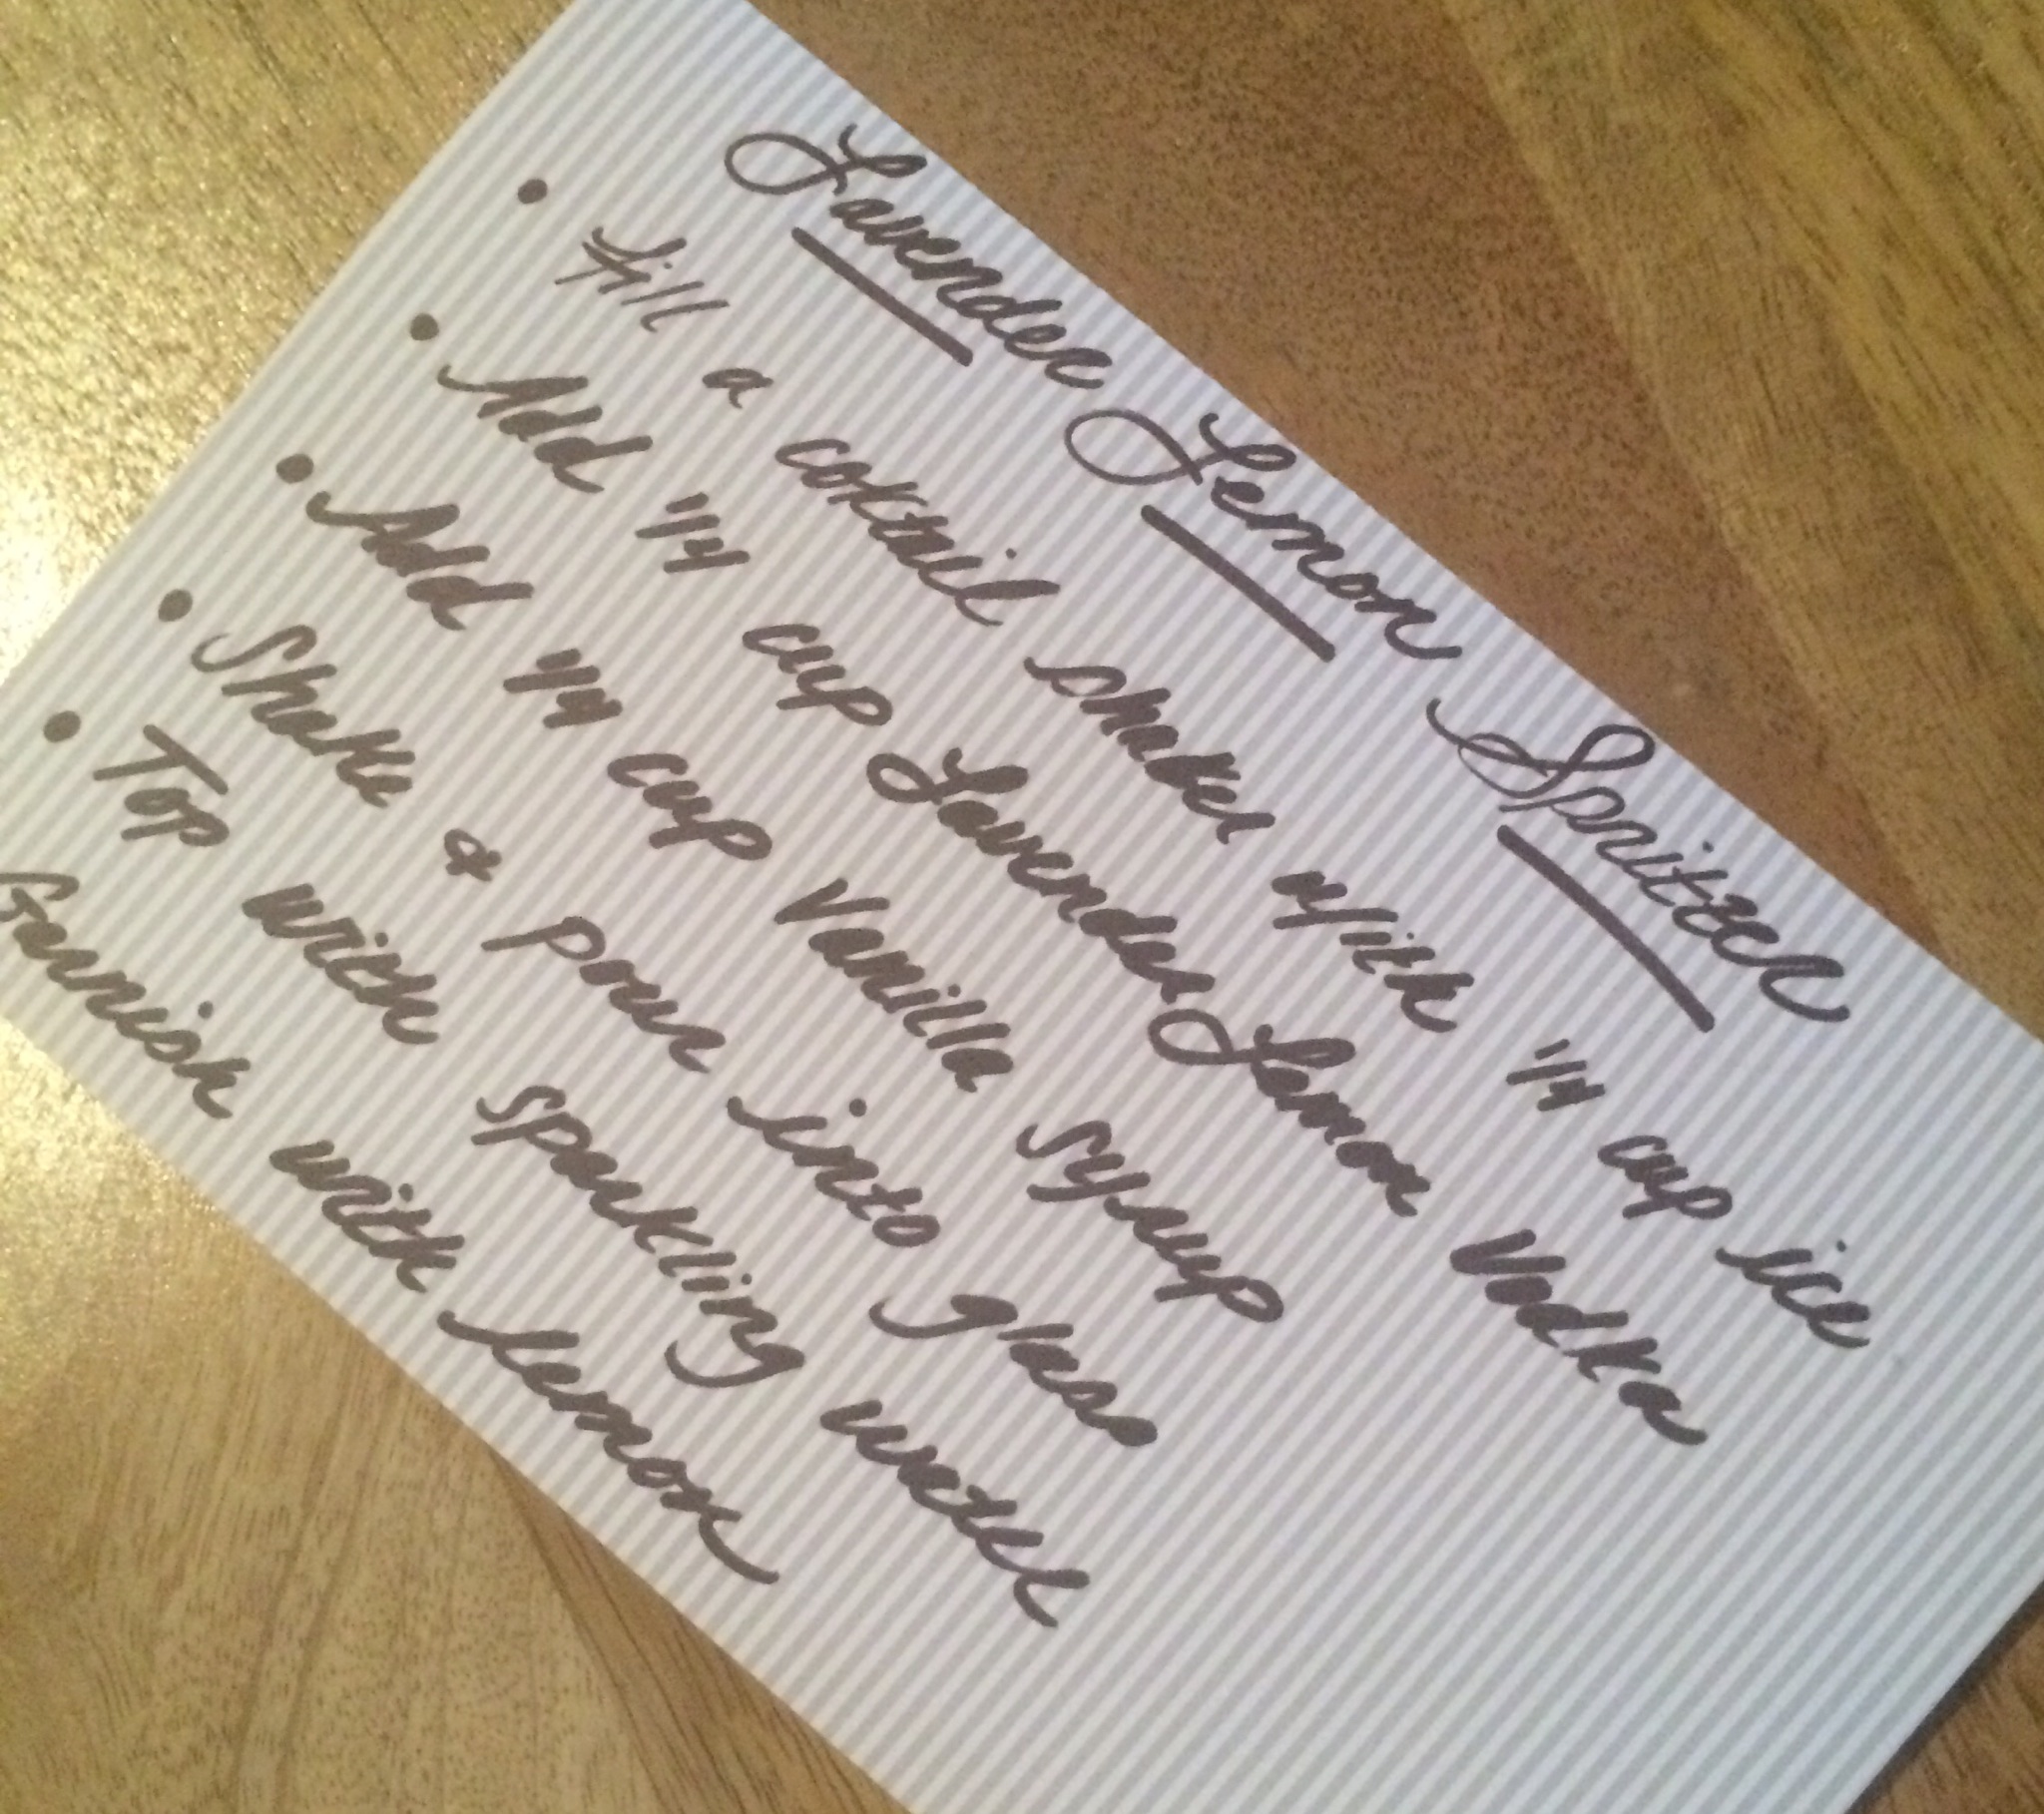 Lavender Lemon Spritzer
• Fill a coktail shaker with 1/4 cup ice
• Add 1/4 cup Lavender Lemon Vodka
• Add 1/4 cup Vanilla Syrup
• Shake & pour into glass
• Top with sparkling water
Garnish with lemon